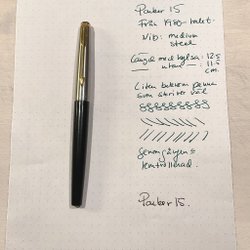 Parker 15
Från 1980-talet.
Nib: medium
steel
Längd med hylsa: 12.5
— " — utan — " — 11.5
cm.
Liten bekväm penna
som skriver väl
Genomgången &
kontrollerad.
Parker 15.